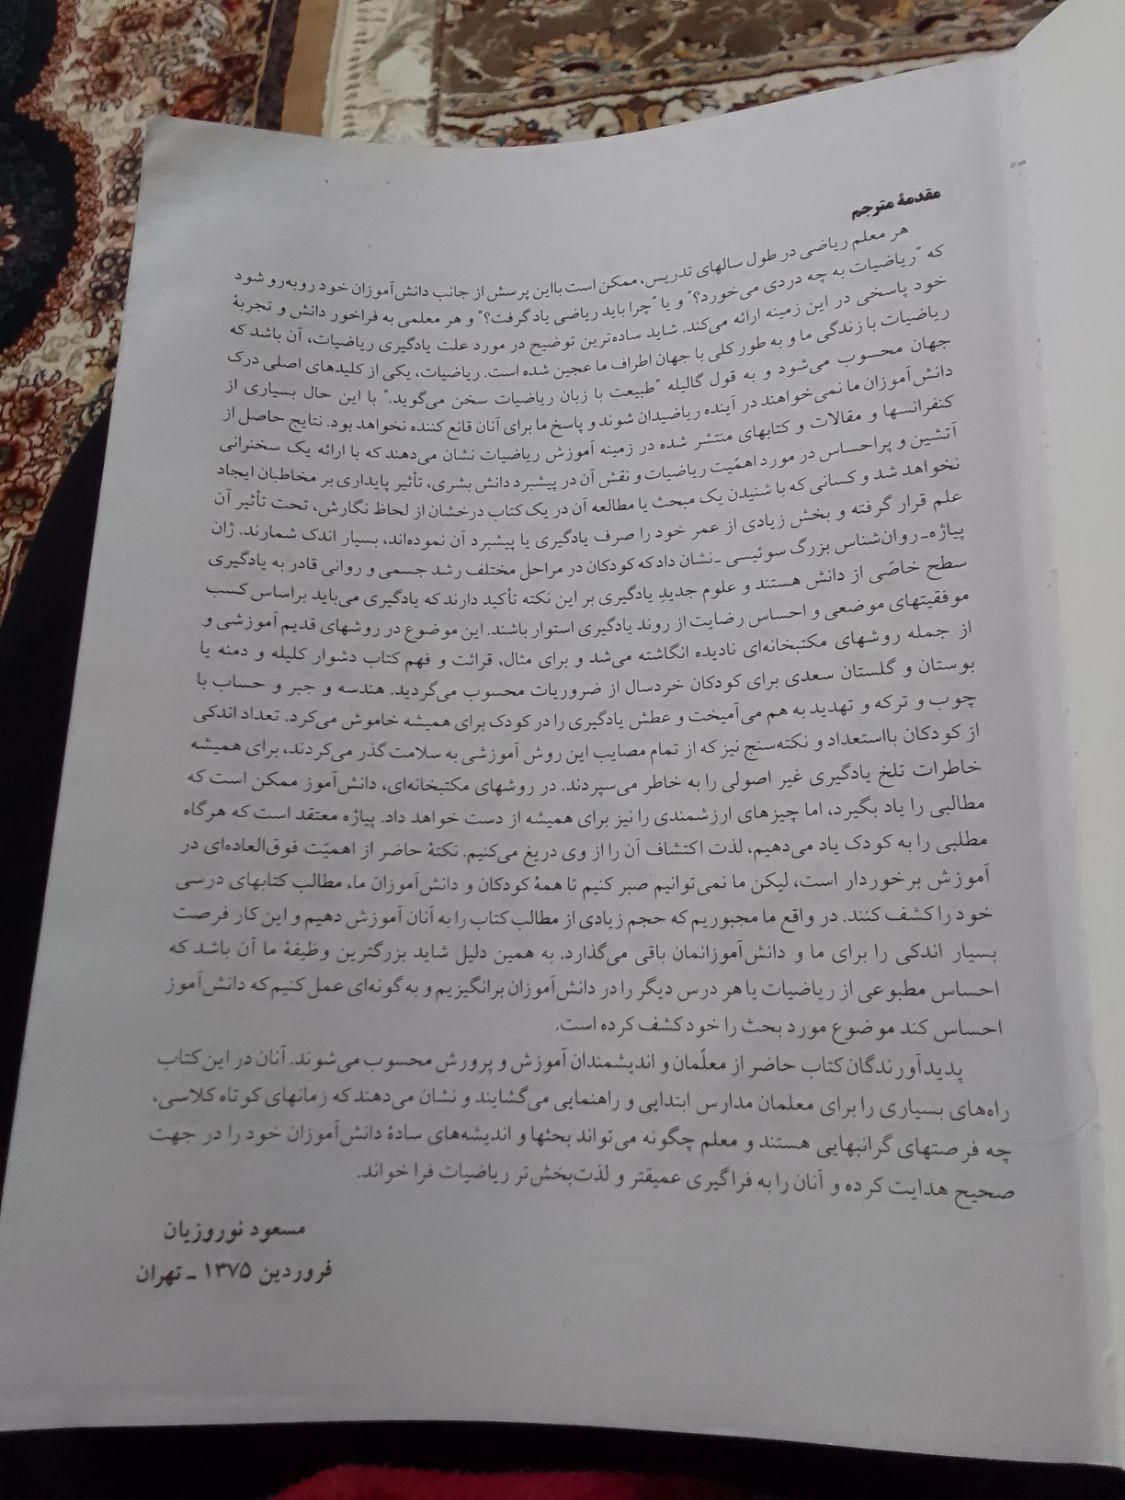 مقدمهٔ مترجم
هر معلم ریاضی در طول سالهای تدریس، ممکن است بااین پرسش از جانب دانش‌آموزان خود روبه‌رو شود
که "ریاضیات به چه دردی می‌خورد؟" و یا "چرا باید ریاضی یاد گرفت؟" و هر معلمی به فراخور دانش و تجربهٔ
خود پاسخی در این زمینه ارائه می‌کند. شاید ساده‌ترین توضیح در مورد علت یادگیری ریاضیات، آن باشد که
ریاضیات با زندگی ما و به طور کلی با جهان اطراف ما عجین شده است. ریاضیات، یکی از کلیدهای اصلی درک
جهان محسوب می‌شود و به قول گالیله "طبیعت با زبان ریاضیات سخن می‌گوید." با این حال بسیاری از
دانش‌آموزان ما نمی‌خواهند در آینده ریاضیدان شوند و پاسخ ما برای آنان قانع کننده نخواهد بود. نتایج حاصل از
کنفرانسها و مقالات و کتابهای منتشر شده در زمینه آموزش ریاضیات نشان می‌دهند که با ارائه یک سخنرانی
آتشین و پراحساس در مورد اهمّیت ریاضیات و نقش آن در پیشبرد دانش بشری، تأثیر پایداری بر مخاطبان ایجاد
نخواهد شد و کسانی که با شنیدن یک مبحث یا مطالعه آن در یک کتاب درخشان از لحاظ نگارش، تحت تأثیر آن
علم قرار گرفته و بخش زیادی از عمر خود را صرف یادگیری یا پیشبرد آن نموده‌اند، بسیار اندک شمارند. ژان
پیاژه ـ روان‌شناس بزرگ سوئیسی ـ نشان داد که کودکان در مراحل مختلف رشد جسمی و روانی قادر به یادگیری
سطح خاصّی از دانش هستند و علوم جدیدِ یادگیری بر این نکته تأکید دارند که یادگیری می‌باید براساس کسب
موفقیتهای موضعی و احساس رضایت از روند یادگیری استوار باشند. این موضوع در روشهای قدیم آموزشی و
از جمله روشهای مکتبخانه‌ای نادیده انگاشته می‌شد و برای مثال، قرائت و فهم کتاب دشوار کلیله و دمنه یا
بوستان و گلستان سعدی برای کودکان خردسال از ضروریات محسوب می‌گردید. هندسه و جبر و حساب با
چوب و ترکه و تهدید به هم می‌آمیخت و عطش یادگیری را در کودک برای همیشه خاموش می‌کرد. تعداد اندکی
از کودکان بااستعداد و نکته‌سنج نیز که از تمام مصایب این روش آموزشی به سلامت گذر می‌کردند، برای همیشه
خاطرات تلخ یادگیری غیر اصولی را به خاطر می‌سپردند. در روشهای مکتبخانه‌ای، دانش‌آموز ممکن است که
مطالبی را یاد بگیرد، اما چیزهای ارزشمندی را نیز برای همیشه از دست خواهد داد. پیاژه معتقد است که هرگاه
مطلبی را به کودک یاد می‌دهیم، لذت اکتشاف آن را از وی دریغ می‌کنیم. نکتهٔ حاضر از اهمیّت فوق‌العاده‌ای در
آموزش برخوردار است، لیکن ما نمی‌توانیم صبر کنیم تا همهٔ کودکان و دانش‌آموزان ما، مطالب کتابهای درسی
خود را کشف کنند. در واقع ما مجبوریم که حجم زیادی از مطالب کتاب را به آنان آموزش دهیم و این کار فرصت
بسیار اندکی را برای ما و دانش‌آموزانمان باقی می‌گذارد. به همین دلیل شاید بزرگترین وظیفهٔ ما آن باشد که
احساس مطبوعی از ریاضیات یا هر درس دیگر را در دانش‌آموزان برانگیزیم و به گونه‌ای عمل کنیم که دانش‌آموز
احساس کند موضوع مورد بحث را خود کشف کرده است.
پدیدآورندگان کتاب حاضر از معلّمان و اندیشمندان آموزش و پرورش محسوب می‌شوند. آنان در این کتاب
راه‌های بسیاری را برای معلمان مدارس ابتدایی و راهنمایی می‌گشایند و نشان می‌دهند که زمانهای کوتاه کلاسی،
چه فرصتهای گرانبهایی هستند و معلم چگونه می‌تواند بحثها و اندیشه‌های سادهٔ دانش‌آموزان خود را در جهت
صحیح هدایت کرده و آنان را به فراگیری عمیقتر و لذت‌بخش‌تر ریاضیات فرا خواند.
مسعود نوروزیان
فروردین ۱۳۷۵ ـ تهران